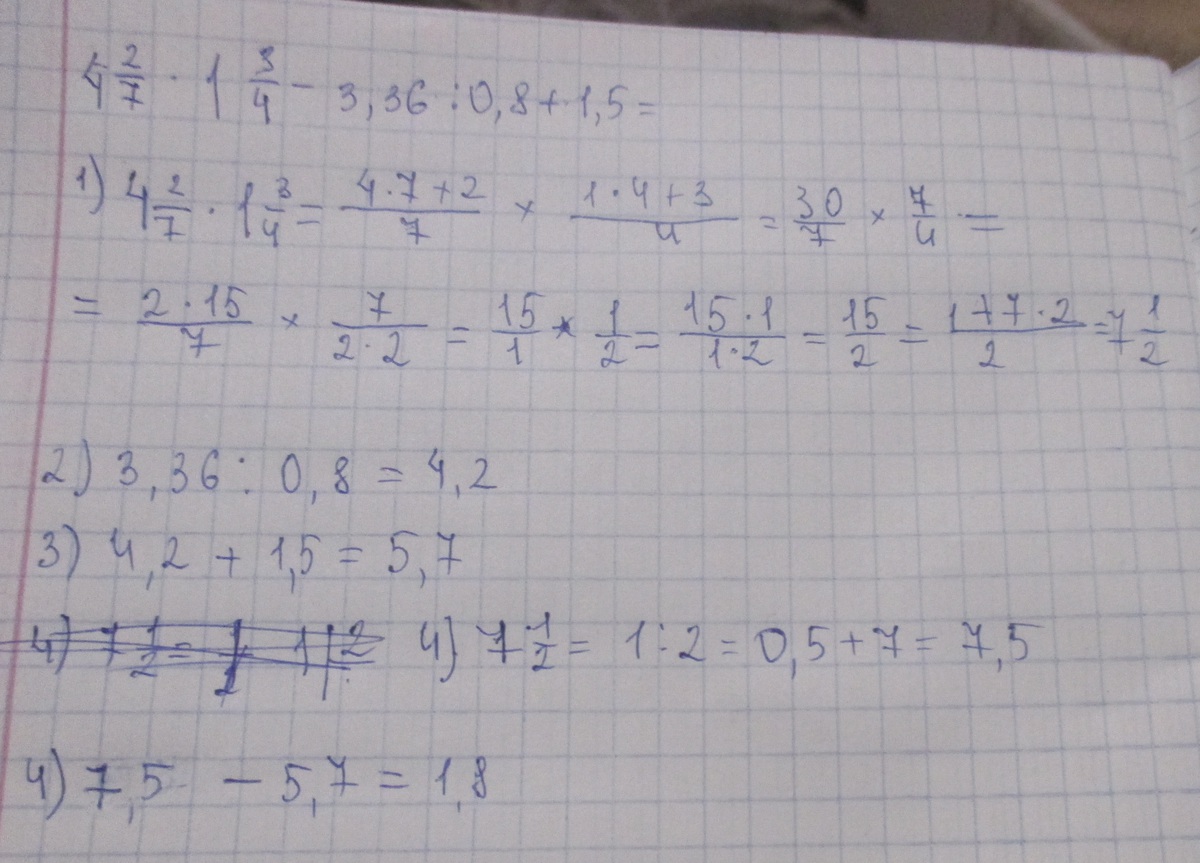 4 2/7 · 1 3/4 − 3,36 : 0,8 + 1,5 =
1) 4 2/7 · 1 3/4 = (4·7+2)/7 × (1·4+3)/4 = 30/7 × 7/4 =
= (2·15)/7 × 7/(2·2) = 15/1 × 1/2 = (15·1)/(1·2) = 15/2 = (1+7·2)/2 = 7 1/2
2) 3,36 : 0,8 = 4,2
3) 4,2 + 1,5 = 5,7
4) 7 1/2 = 1 : 2 = 0,5 + 7 = 7,5
4) 7,5 − 5,7 = 1,8